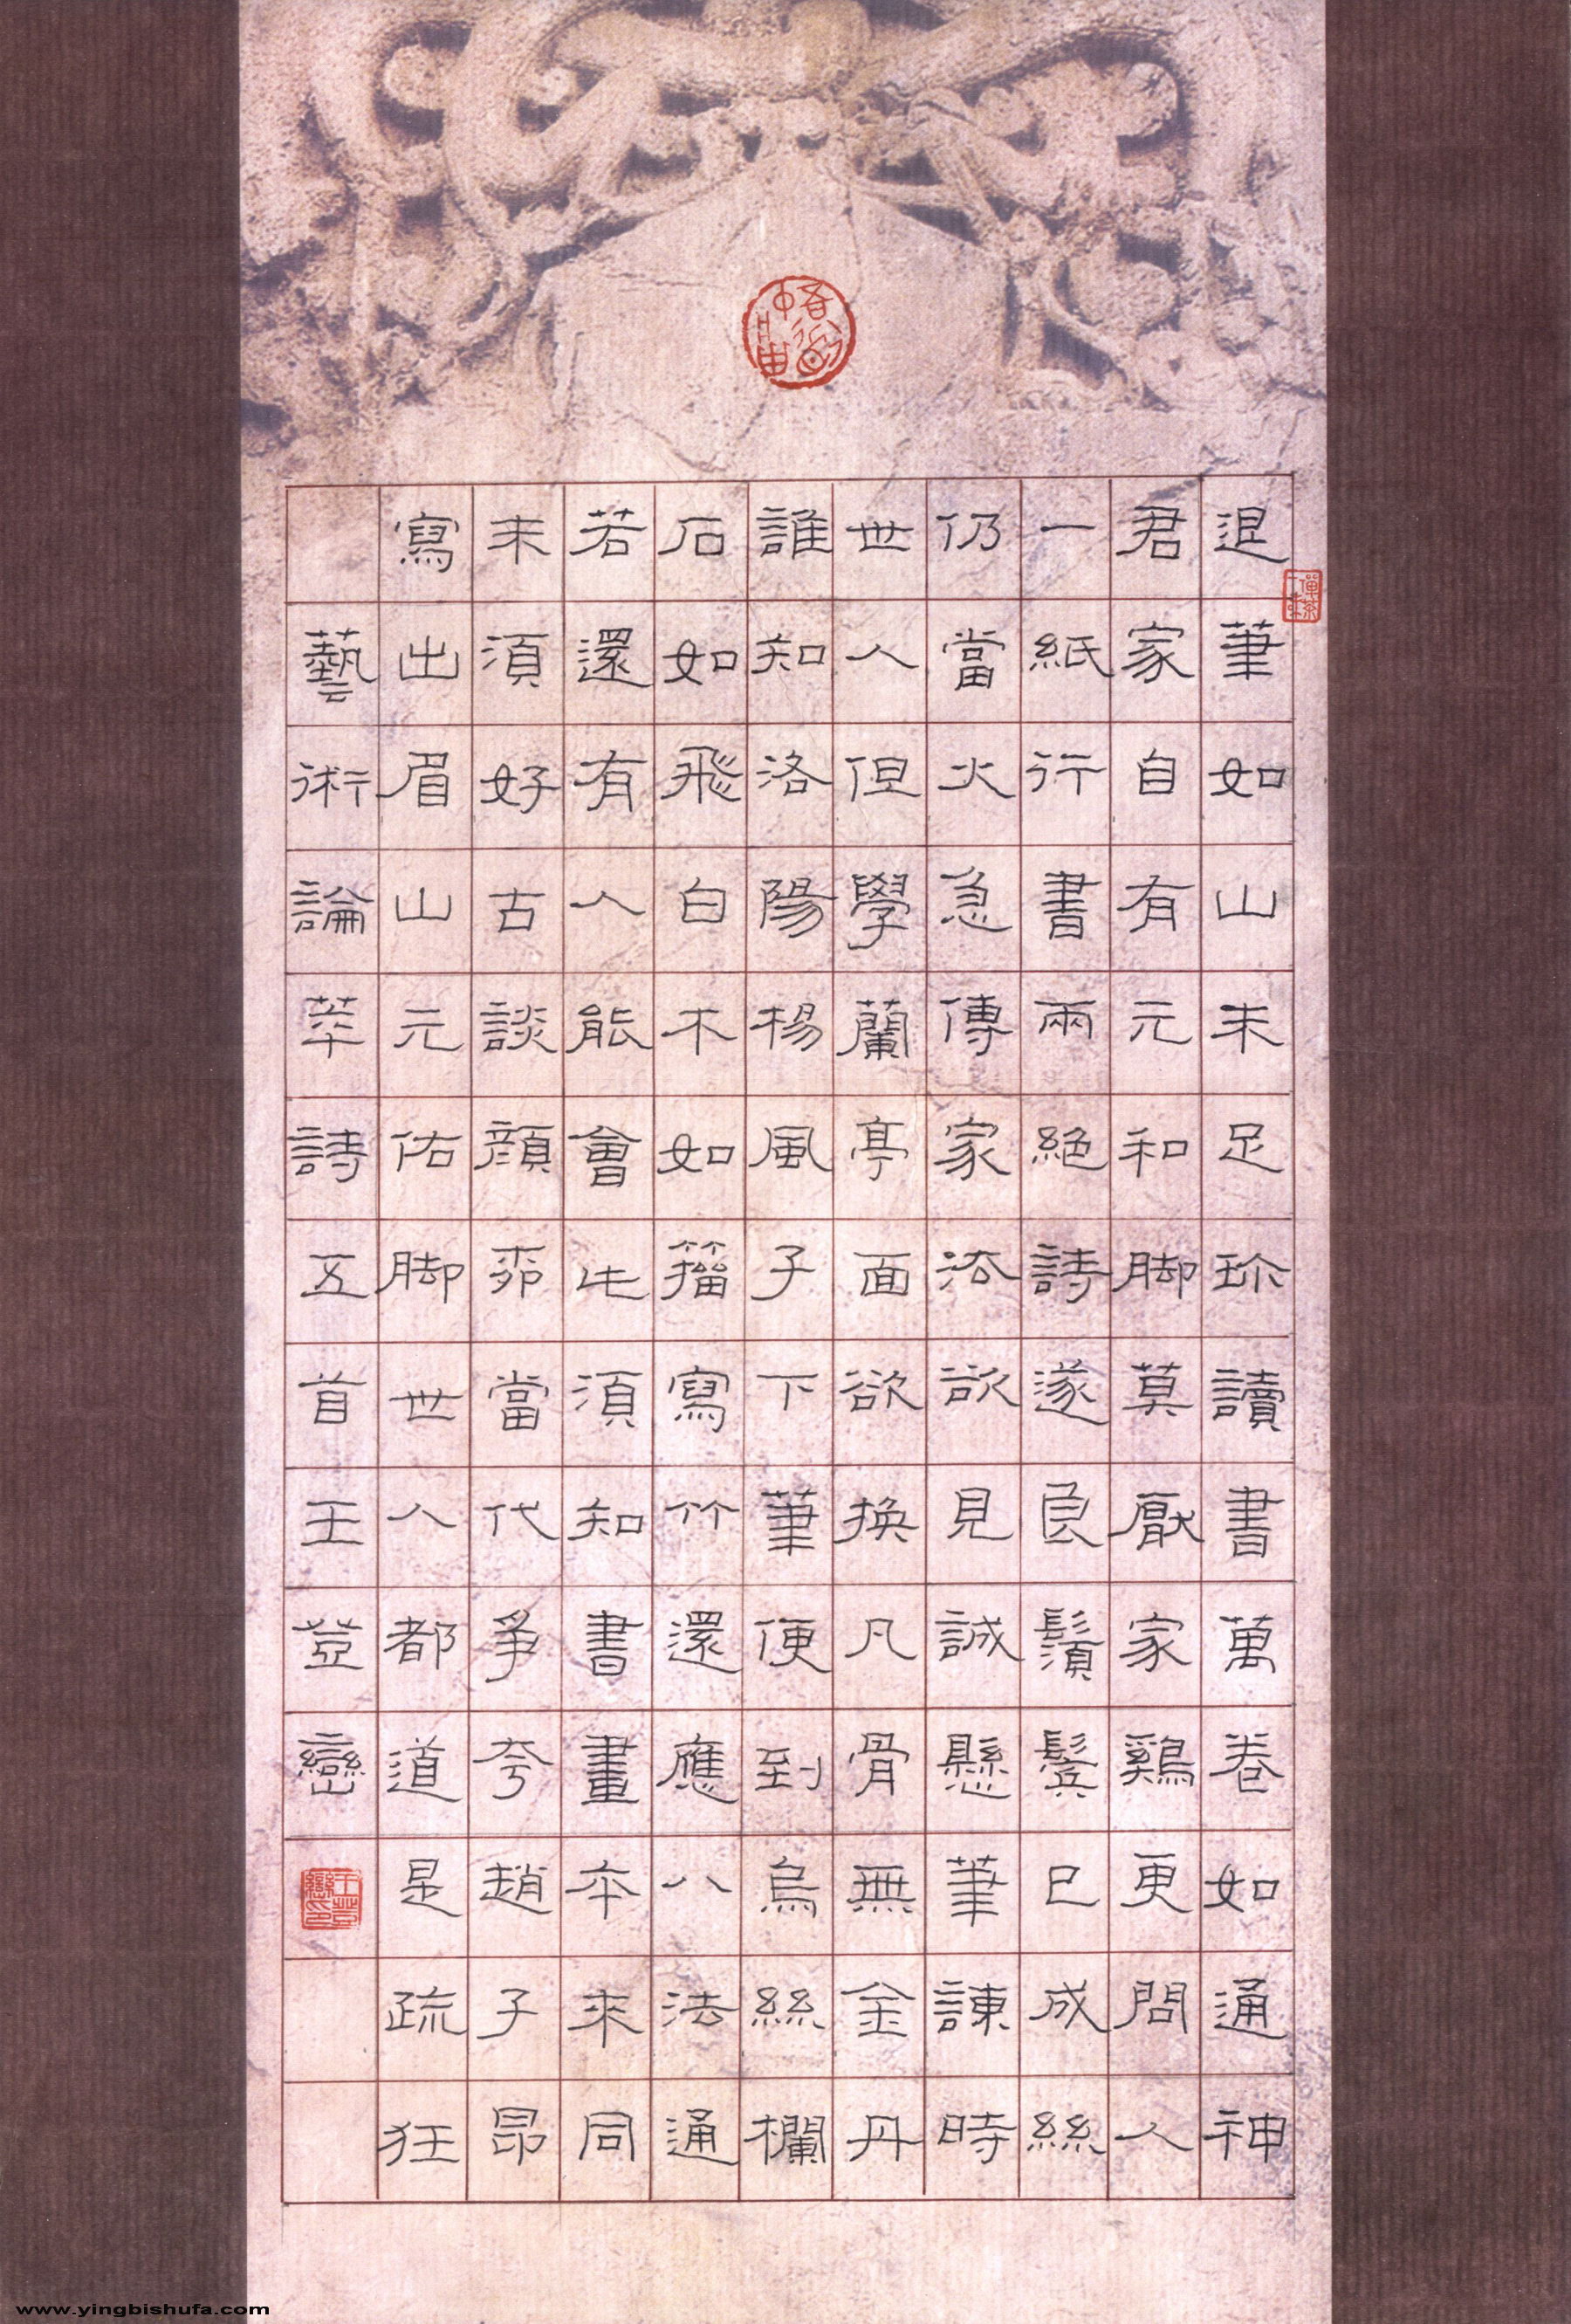 退筆如山未足珍讀書萬卷如通神
君家自有元和脚莫厭家鷄更問人
一紙行書兩絕詩遂良鬚鬢已成絲
仍當火急傳家法欲見誠懸筆諫時
世人但學蘭亭面欲換凡骨無金丹
誰知洛陽楊風子下筆便到烏絲欄
石如飛白木如籀寫竹還應八法通
若還有人能會此須知書畫本來同
未須好古談顏柳當代爭夸趙子昂
寫出眉山元佑脚世人都道是疏狂
藝術論萃詩五首王登巒
www.yingbishufa.com